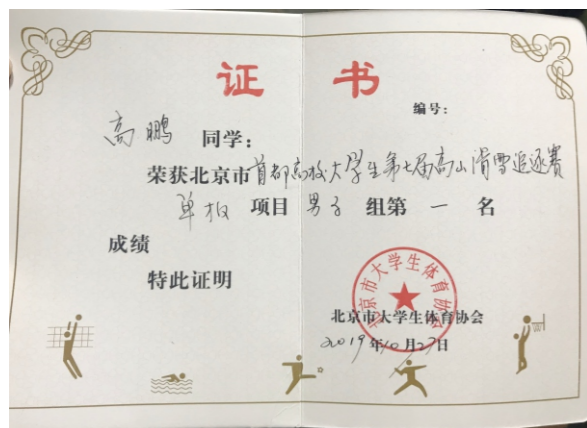 证 书
编号：
高鹏 同学：
荣获北京市首都高校大学生第七届高山滑雪追逐赛
单板 项目 男子 组第 一 名
成绩
特此证明
北京市大学生体育协会
北京市大学生体育协会
2019年10月27日